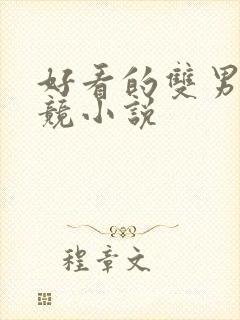 好看的雙男
競小說
程章文